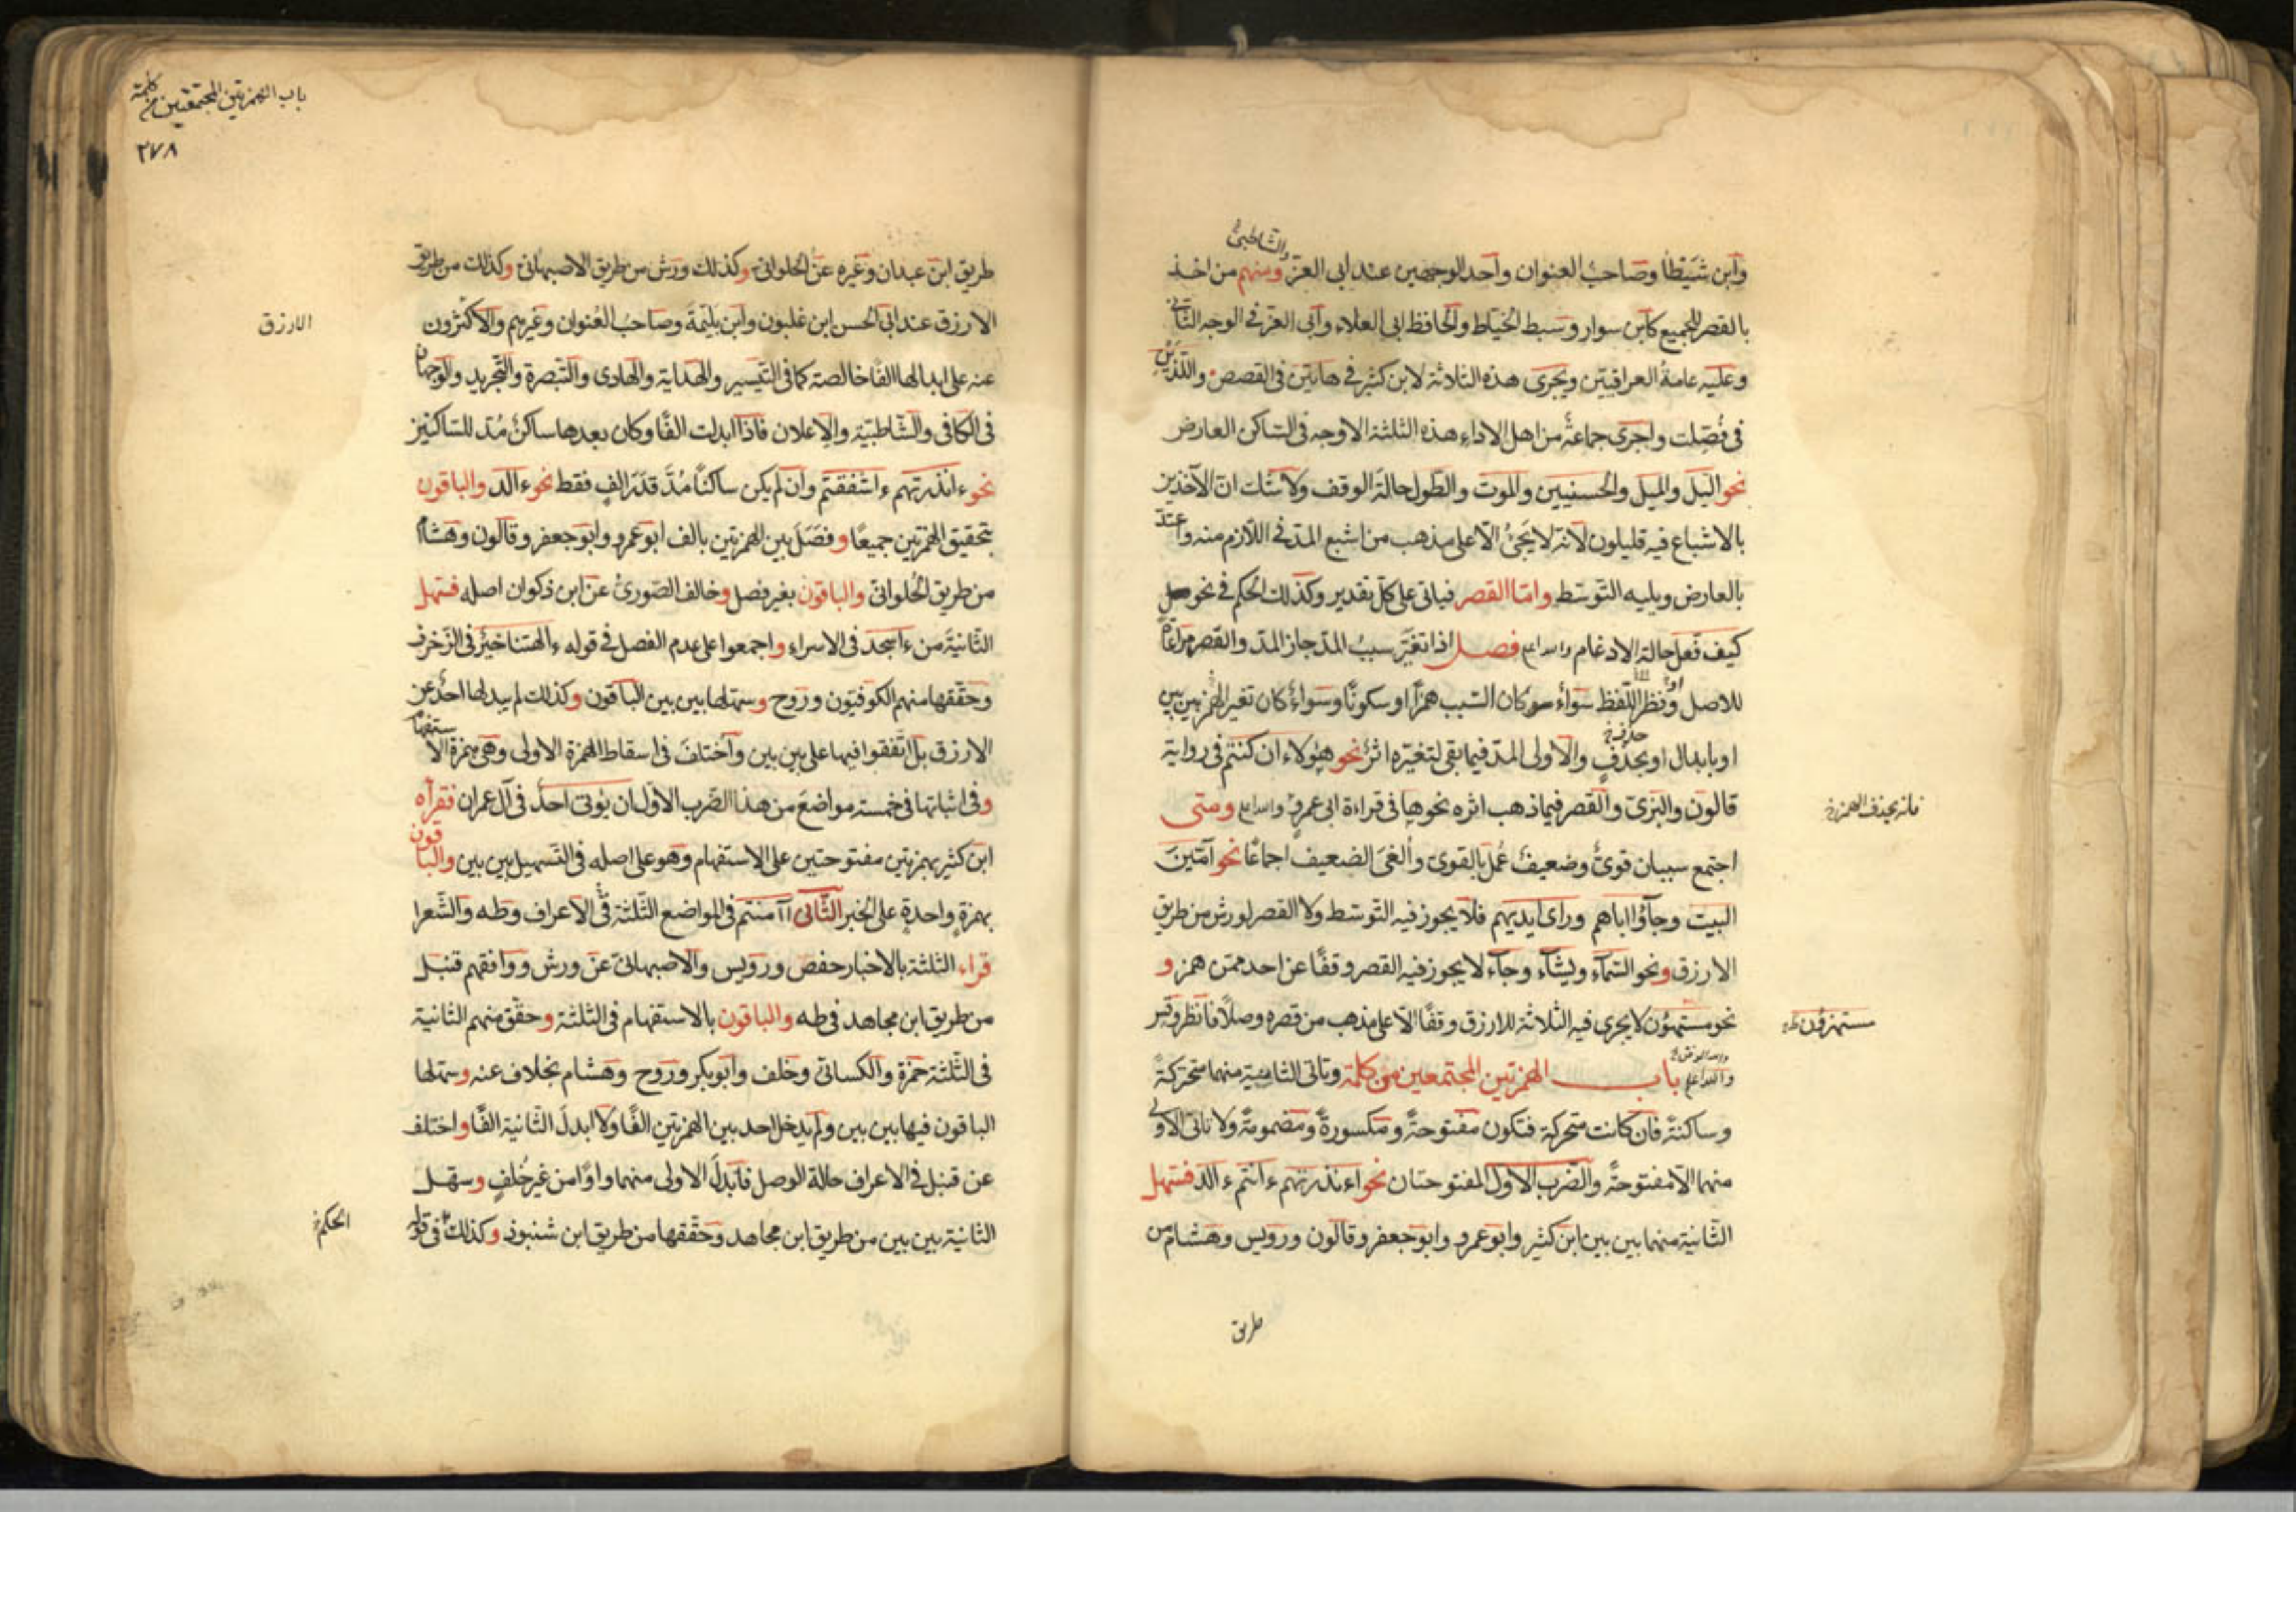 والشاطبي
وابن شيطا وصاحب العنوان واحد الوجهين عند ابى العز ومنهم من اخذ
بالقصر للجميع كابن سوار وسبط الخياط والحافظ ابى العلاء وابى العز فى الوجه الثانى
وعليه عامة العراقيين ويجرى هذه الثلاثة لابن كثير فى هاتين فى القصص واللذين
فى فصلت واجرى جماعة من اهل الاداء هذه الثلثة الاوجه فى الساكن العارض
نحو اليل والميل والحسنيين والموت والطول حالة الوقف ولا شك ان الآخذين
بالاشباع فيه قليلون لانه لا يجئ الا على مذهب من اشبع المد فى اللازم منه واعتد
بالعارض ويليه التوسط واما القصر فياتى على كل تقدير وكذلك الحكم فى نحو
كيف فعل حالة الادغام والله اعلم فصل اذا تغير سبب المد جاز المد والقصر مراعاة
للاصل او نظرا للفظ سواء كان السبب همزا او سكونا وسواء كان تغير الهمز بين بين
او بابدال او بحذف والاولى المد فيما بقى لتغيره اثر نحو هؤلاء ان كنتم فى رواية
قالون والبزى والقصر فيما ذهب اثره نحو ها فى قراءة ابى عمرو والله اعلم ومتى
فانه بحذف الهمزة
اجتمع سببان قوى وضعيف عمل بالقوى والغى الضعيف اجماعا نحو آمين
البيت وجاؤا اباهم وراى ايديهم فلا يجوز فيه التوسط ولا القصر لورش من طريق
الارزق ونحو السماء ويشاء وجاء لا يجوز فيه القصر وقفا عن احد ممن همز و
نحو مستهزؤن لا يجرى فيه الثلاثة للازرق وقفا الا على مذهب من قصره وصلا فانظر وقس
مستهزؤن
والله اعلم باب الهمزتين المجتمعين من كلمة وتاتى الثانية منهما متحركة
وساكنة فان كانت متحركة فتكون مفتوحة ومكسورة ومضمومة ولا تاتى الاولى
منهما الا مفتوحة والضرب الاول المفتوحتان نحو اءنذرتهم ءانتم ءالد فسهل
الثانية منهما بين بين ابن كثير وابو عمرو وابو جعفر وقالون ورويس وهشام من
طريق
باب الهمزتين المجتمعتين من كلمة
٢٧٨
طريق ابن عبدان وغيره عن الحلوانى وكذلك ورش من طريق الاصبهانى وكذلك من طريق
الارزق عند ابى الحسن ابن غلبون وابن بليمة وصاحب العنوان وغيرهم والاكثرون
الازرق
عنه على ابدالها الفا خالصة كما فى التيسير والهداية والهادى والتبصرة والتجريد والوجهان
فى الكافى والشاطبية والاعلان فاذا ابدلت الفا وكان بعدها ساكن مد للساكنين
نحو ءانذرتهم ءاشفقتم وان لم يكن ساكنا مد قدر الف فقط نحو ءالد والباقون
بتحقيق الهمزتين جميعا وفصل بين الهمزتين بالف ابو عمرو وابو جعفر وقالون وهشام
من طريق الحلوانى والباقون بغير فصل وخالف الصورى عن ابن ذكوان اصله فسهل
الثانية من ءاسجد فى الاسراء واجمعوا على عدم الفصل فى قوله ءالهتنا خير فى الزخرف
وحققها منهم الكوفيون وروح وسهلها بين بين الباقون وكذلك لم يبدلها احد عن
الارزق بل اتفقوا فيها على بين بين واختلف فى اسقاط الهمزة الاولى وهى همزة الاستفهام
وفى اثباتها فى خمسة مواضع من هذا الضرب الاول ان يؤتى احد فى آل عمران فقرأه
ابن كثير بهمزتين مفتوحتين على الاستفهام وهو على اصله فى التسهيل بين بين والباقون
بهمزة واحدة على الخبر الثانى اآمنتم فى المواضع الثلثة فى الاعراف وطه والشعرا
قراء الثلثة بالاخبار حفص ورويس والاصبهانى عن ورش ووافقهم قنبل
من طريق ابن مجاهد فى طه والباقون بالاستفهام فى الثلثة وحقق منهم الثانية
فى الثلثة حمزة والكسائى وخلف وابو بكر وروح وهشام بخلاف عنه وسهلها
الباقون فيها بين بين ولم يدخل احد بين الهمزتين الفا ولا ابدل الثانية الفا واختلف
عن قنبل فى الاعراف حالة الوصل فابدل الاولى منهما واوا من غير خلف وسهل
الثانية بين بين من طريق ابن مجاهد وحققها من طريق ابن شنبوذ وكذلك فى قوله
الحكم